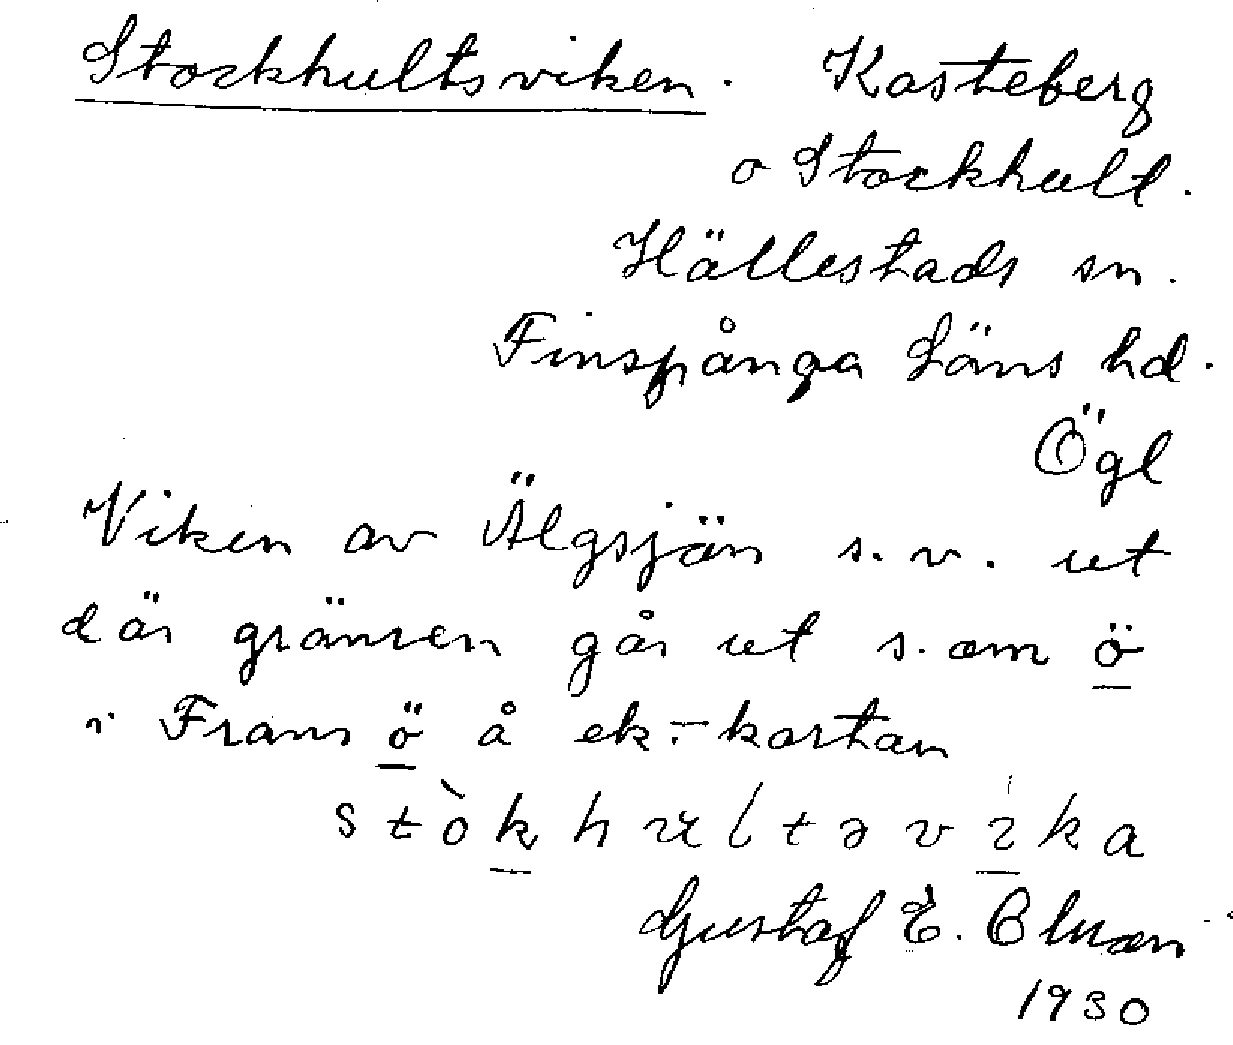 Stockhultsviken. Kasteberg
o Stockhult.
Hällestads sn.
Finspånga Läns hd.
Ögl
Viken av Älgsjön s.v. ut
där gränsen går ut s. om ö
i Frans ö å ek.-kartan
stòkhultəvika
Gustaf E.
1930